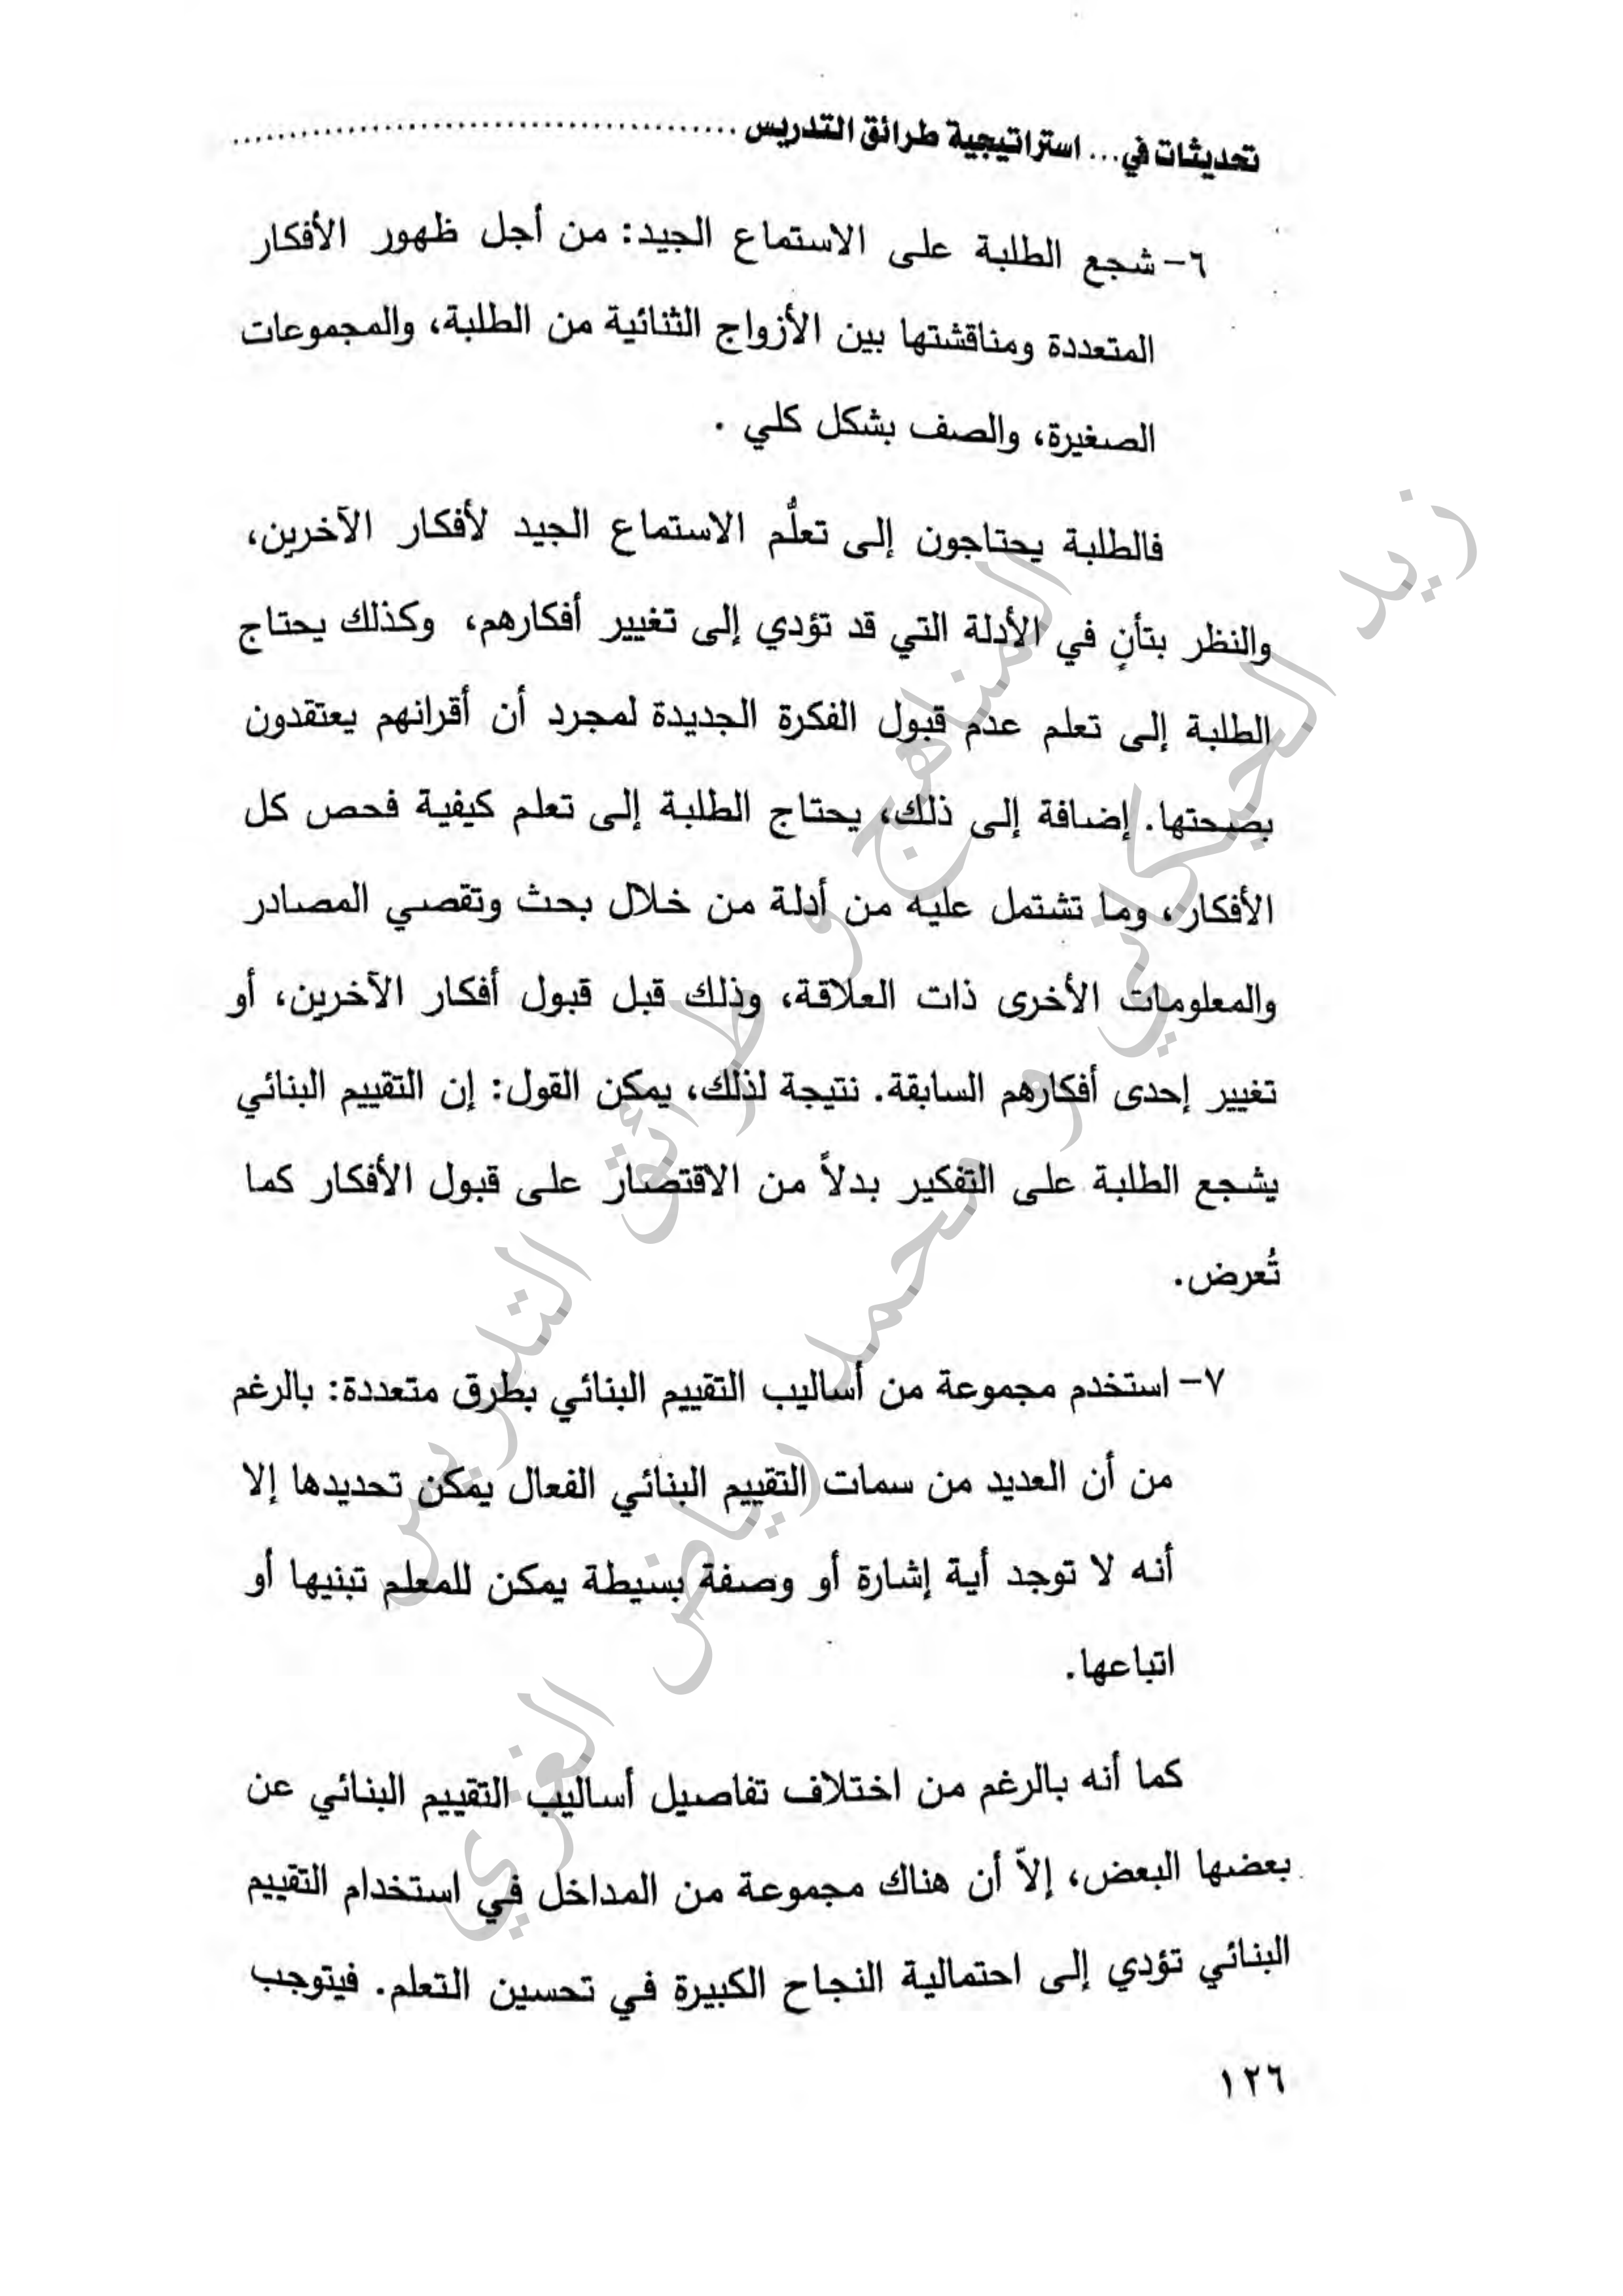 تحديثات في... استراتيجية طرائق التدريس ............................................
٦- شجع الطلبة على الاستماع الجيد: من أجل ظهور الأفكار
المتعددة ومناقشتها بين الأزواج الثنائية من الطلبة، والمجموعات
الصغيرة، والصف بشكل كلي .
فالطلبة يحتاجون إلى تعلُّم الاستماع الجيد لأفكار الآخرين،
والنظر بتأنٍ في الأدلة التي قد تؤدي إلى تغيير أفكارهم، وكذلك يحتاج
الطلبة إلى تعلم عدم قبول الفكرة الجديدة لمجرد أن أقرانهم يعتقدون
بصحتها. إضافة إلى ذلك، يحتاج الطلبة إلى تعلم كيفية فحص كل
الأفكار، وما تشتمل عليه من أدلة من خلال بحث وتقصي المصادر
والمعلومات الأخرى ذات العلاقة، وذلك قبل قبول أفكار الآخرين، أو
تغيير إحدى أفكارهم السابقة. نتيجة لذلك، يمكن القول: إن التقييم البنائي
يشجع الطلبة على التفكير بدلاً من الاقتصار على قبول الأفكار كما
تُعرض.
٧- استخدم مجموعة من أساليب التقييم البنائي بطرق متعددة: بالرغم
من أن العديد من سمات التقييم البنائي الفعال يمكن تحديدها إلا
أنه لا توجد أية إشارة أو وصفة بسيطة يمكن للمعلم تبنيها أو
اتباعها.
كما أنه بالرغم من اختلاف تفاصيل أساليب التقييم البنائي عن
بعضها البعض، إلاّ أن هناك مجموعة من المداخل في استخدام التقييم
البنائي تؤدي إلى احتمالية النجاح الكبيرة في تحسين التعلم. فيتوجب
١٢٦
المناهج و طرائق التدريس
زيد الحيكاني و محمد رياض الغزي